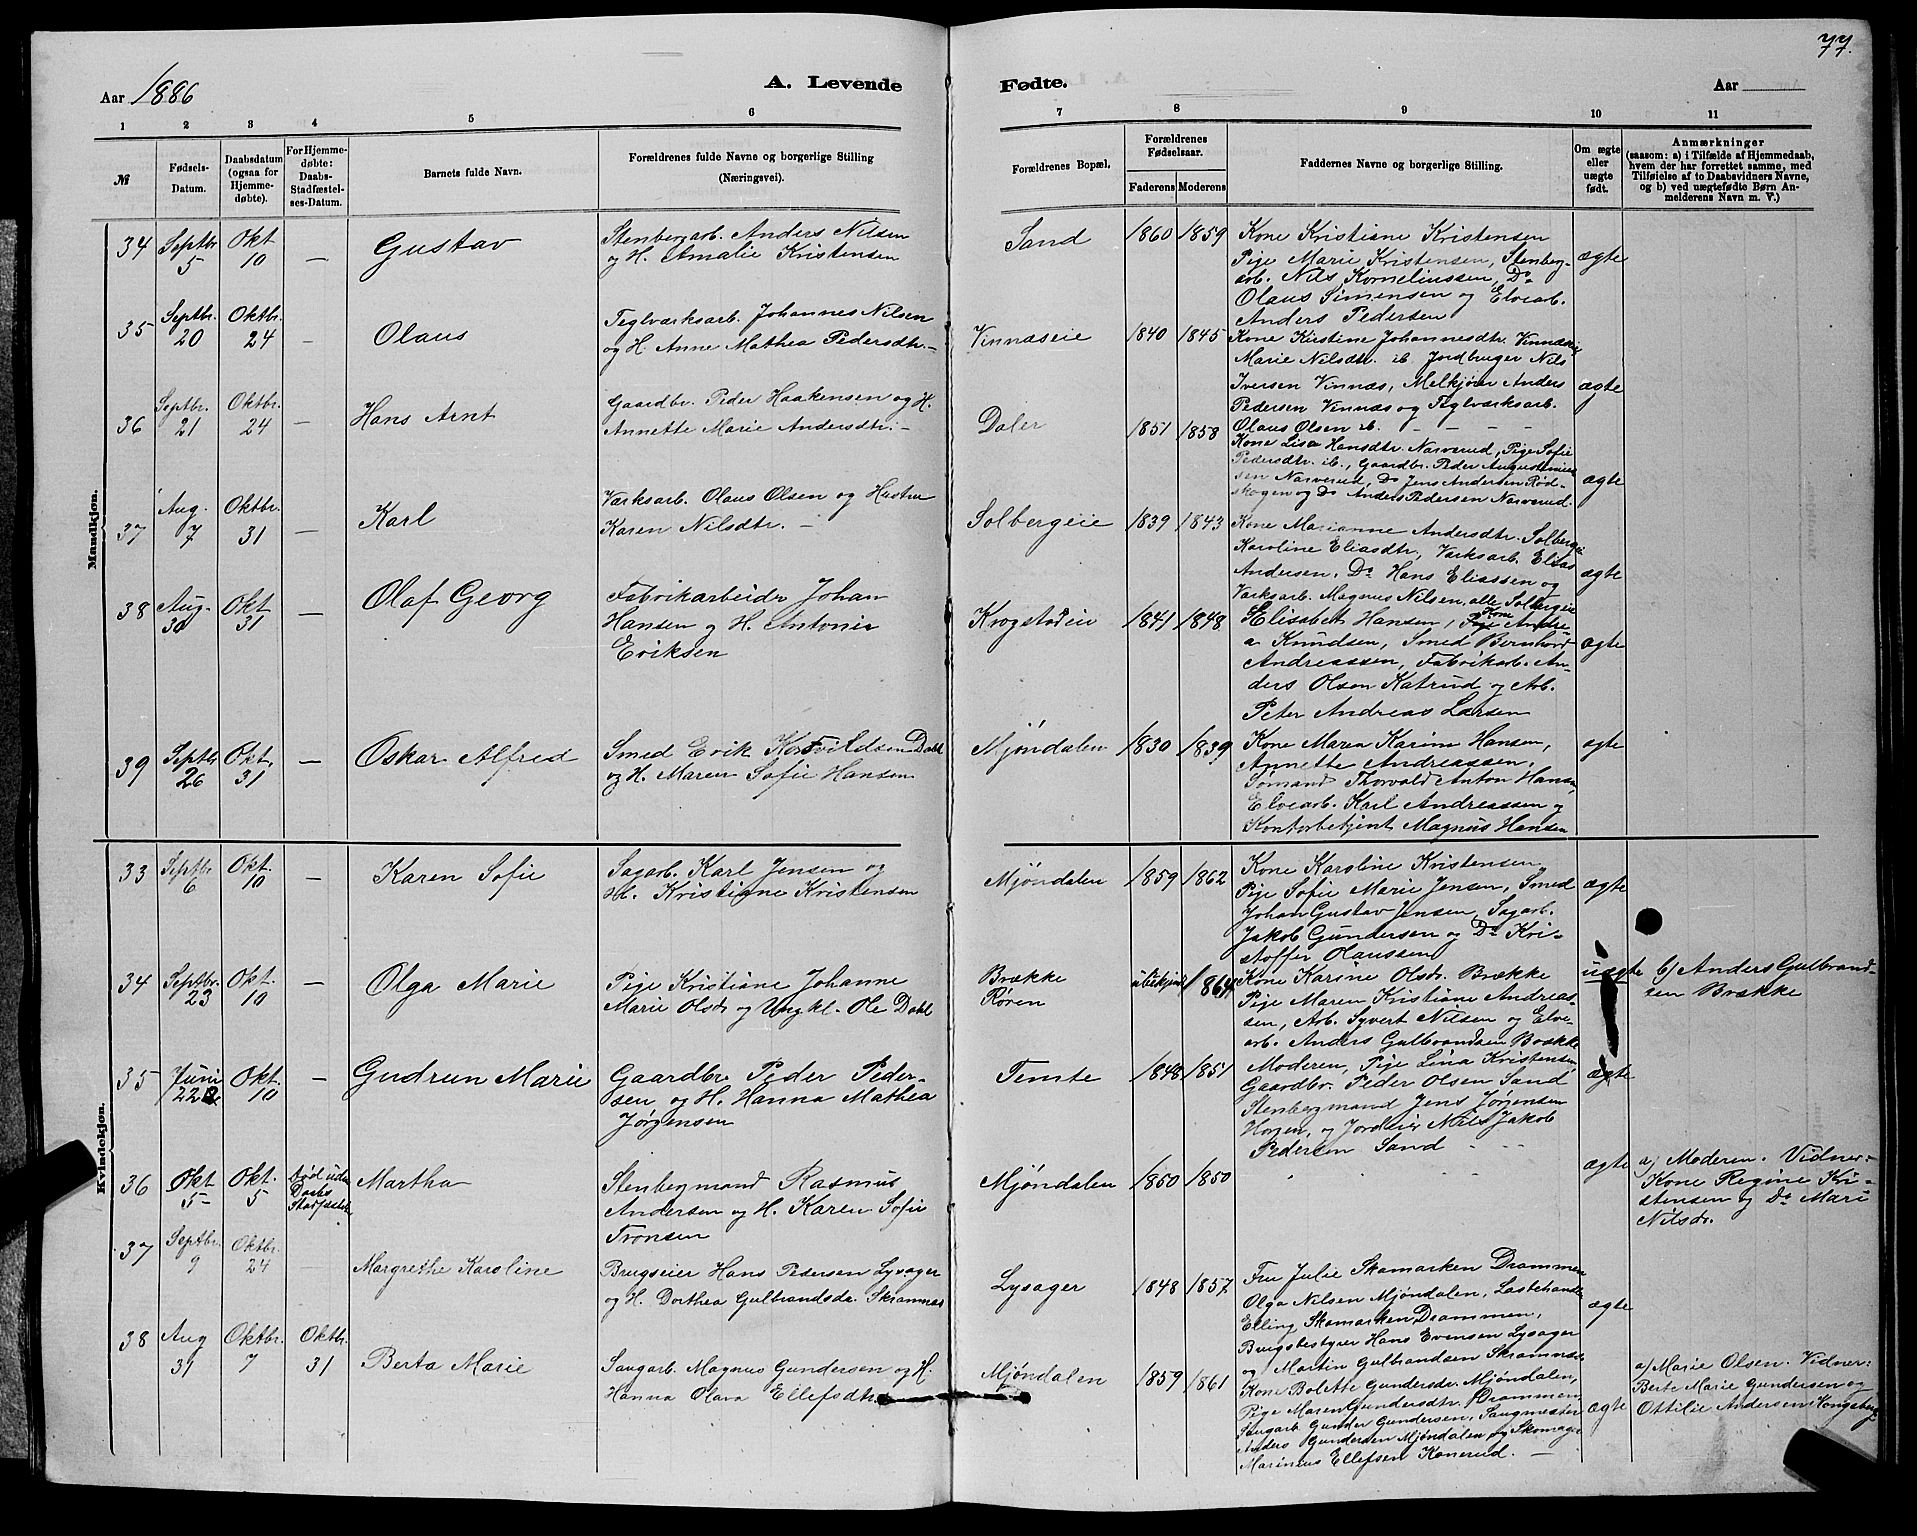 77.
Aar 1886
A. Levende
Fødte.
Aar
1 2 3 4 5 6 7 8 9 10 11
№
Fødsels-
Datum.
Daabsdatum
(ogsaa for
Hjemme-
døbte).
For Hjemme-
døbte:
Daabs-
Stadfæstel-
ses-Datum.
Barnets fulde Navn.
Forældrenes fulde Navne og borgerlige Stilling
(Næringsvei).
Forældrenes Bopæl.
Forældrenes
Fødselsaar.
Faderens Moderens
Faddernes Navne og borgerlige Stilling.
Om ægte
eller
uægte
født.
Anmærkninger
(saasom: a) i Tilfælde af Hjemmedaab,
hvem der har forrettet samme, med
Tilføielse af to Daabsvidners Navne,
og b) ved uægtefødte Børn An-
melderens Navn m. V.)
Mandkjøn.
34 Septbr. 5 Okt 10 — Gustav
Stenbergarb. Anders Nilsen
og H. Amalie Kristensen
Sand 1860 1859
Kone Kristiane Kristensen
Pige Marie Kristensen, Stenberg-
arb. Nils Korneliussen, Do
Olaus Simensen og Elvearb.
Anders Pedersen
ægte
35 Septbr. 20 Oktbr. 24 — Olaus
Teglværksarb. Johannes Nilsen
og H. Anne Mathea Pedersdtr. —
Vinnæseie 1840 1845
Kone Kirstine Johannesdtr. Vinnæseie
Marie Nilsdtr. ib. Jordbruger Nils
Iversen Vinnæs, Melkjører Anders
Pedersen Vinnæs og Teglværksarb.
Olaus Olsen ib. - - - -
ægte
36 Septbr. 21 Oktbr. 24 — Hans Arnt
Gaardbr. Peder Haakensen og H.
Annette Marie Andersdtr. —
Daler 1851 1858
Kone Lisa Hansdtr. Narverud, Pige Sofie
Pedersdtr. ib., Gaardbr. Peder Augustinius-
sen Narverud, Do Jens Andersen Rød-
skogen og Do Anders Pedersen Narverud.
ægte
37 Aug. 7 Oktbr. 31 — Karl
Værksarb. Olaus Olsen og Hustru
Karen Nilsdtr. —
Solbergeie 1839 1843
Kone Marianne Andersdtr. Solbergeie
Karoline Eliasdtr, Værksarb. Elias
Andersen, Do Hans Eliassen og
Værksarb. Magnus Nilsen, alle Solbergeie
ægte
38 Aug. 30 Okt 31 — Olaf Georg
Fabrikarbeider Johan
Hansen og H. Antonie
Eriksen
Krogstadeie 1841 1848
Elisabet Hansen, Kone Andre
a Knudsen, Smed Bernhard
Andreassen, Fabrikarb. An-
ders Olsen Katrud og Arb.
Peter Andreas Larsen
ægte
39 Septbr 26 Okt. 31 — Oskar Alfred
Smed Erik Dahl
og H. Maren Sofie Hansen
Mjøndalen 1830 1839
Kone Maren Karine Hansen,
Annette Andreassen,
Sømand Thorvald Anton Hansen,
Elvearb. Karl Andreassen og
Kontorbetjent Magnus Hansen
ægte
Kvindekjøn.
33 Septbr 6 Okt. 10 — Karen Sofie
Sagarb. Karl Jensen og
H. Kristiane Kristensen
Mjøndalen 1859 1862
Kone Karoline Kristensen
Pige Sofie Marie Jensen, Smed
Johan Gustav Jensen, Sagarb.
Jakob Gundersen og Do Kri-
stoffer Olaussen
ægte
34 Septbr. 23 Okt. 10 — Olga Marie
Pige Kristiane Johanne
Marie Olsdr og Ungkl. Ole Dahl
Brække
Røren ubekjendt 1864
Kone Karine Olsdr. Brække
Pige Maren Kristiane Andreas-
sen, Arb. Syvert Nilsen og Elve-
arb. Anders Gulbrandsen Brække
uægte b) Anders Gulbrand-
sen Brække
35 Juni 22 Okt. 10 — Gudrun Marie
Gaardbr. Peder Peder-
sen og H. Hanna Mathea
Jørgensen
Temte 1848 1851
Moderen, Pige Lina Kristensen
Gaardbr. Peder Olsen Sand
Stenbergmand Jens Jørgensen
Horgen, og Jordeier Nils Jakob
Pedersen Sand
ægte
36 Okt 5 Okt. 5 død uden
Daabs
Stadfæstelse Martha
Stenbergmand Rasmus
Andersen og H. Karen Sofie
Tronsen
Mjøndalen 1850 1850
ægte a) Moderen. Vidner-
Kone Regine Kri-
stensen og Do Mari
Nilsdr.
37 Septbr. 9 Oktbr. 24 Margrethe Karoline
Brugseier Hans Pedersen Lysager
og H. Dorthea Gulbrandsdr. Skramnæs
Lysager 1848 1857
Fru Julie Skamarken Drammen
Olga Nilsen Mjøndalen, Lastehandler
Elling Skamarken Drammen,
Brugsbestyrer Hans Evensen Lysager
og Martin Gulbrandsen Skramnæs
ægte
38 Aug 31 Oktbr. 7 Oktbr. 31 Berta Marie
Saugarb. Magnus Gundersen og H.
Hanna Olava Ellefsdtr
Mjøndalen 1859 1861
Kone Bolette Gundersdtr. Mjøndalen,
Pige Maren Gundersdtr. Drammen,
Saugarb. Gunder Gundersen, Saugmester
Anders Gundersen Mjøndalen og Skomager
Marinius Ellefsen Konerud. —
ægte a) Marie Olsen. Vidner:
Berte Marie Gundersen og
Ottilie Andersen Kongsberg